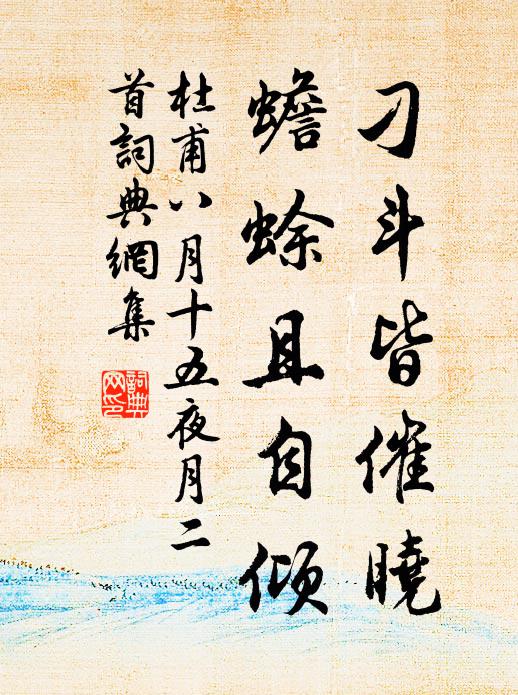 刁斗皆催曉
蟾蜍且自傾
杜甫八月十五夜月二
首詞典網集
詞典
网印